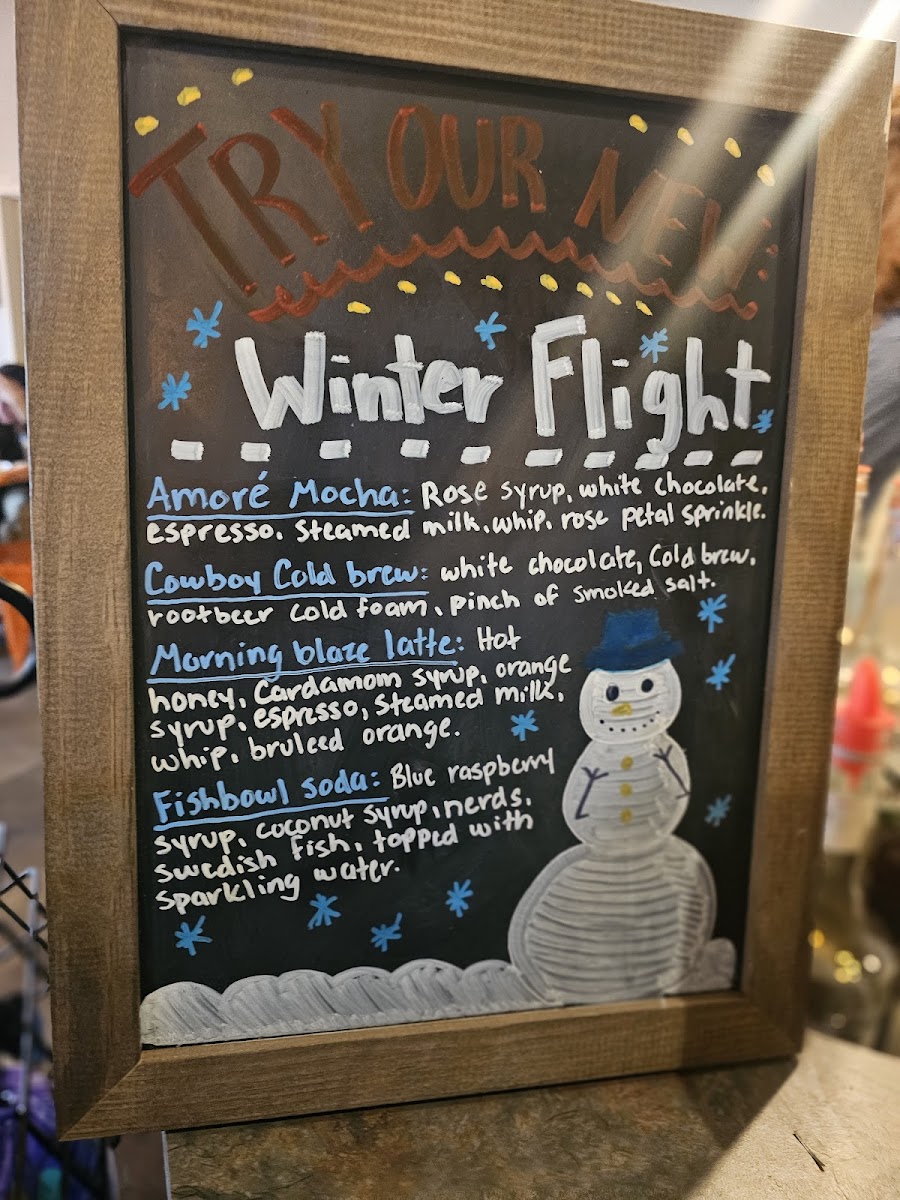 TRY OUR NEW:
Winter Flight
Amoré Mocha: Rose syrup, white chocolate,
espresso, steamed milk, whip, rose petal sprinkle.
Cowboy Cold brew: white chocolate, Cold brew,
rootbeer cold foam, pinch of smoked salt.
Morning blaze latte: Hot
honey, Cardamom syrup, orange
syrup, espresso, steamed milk,
whip, bruleed orange.
Fishbowl soda: Blue raspberry
syrup, coconut syrup, nerds,
swedish fish, topped with
sparkling water.